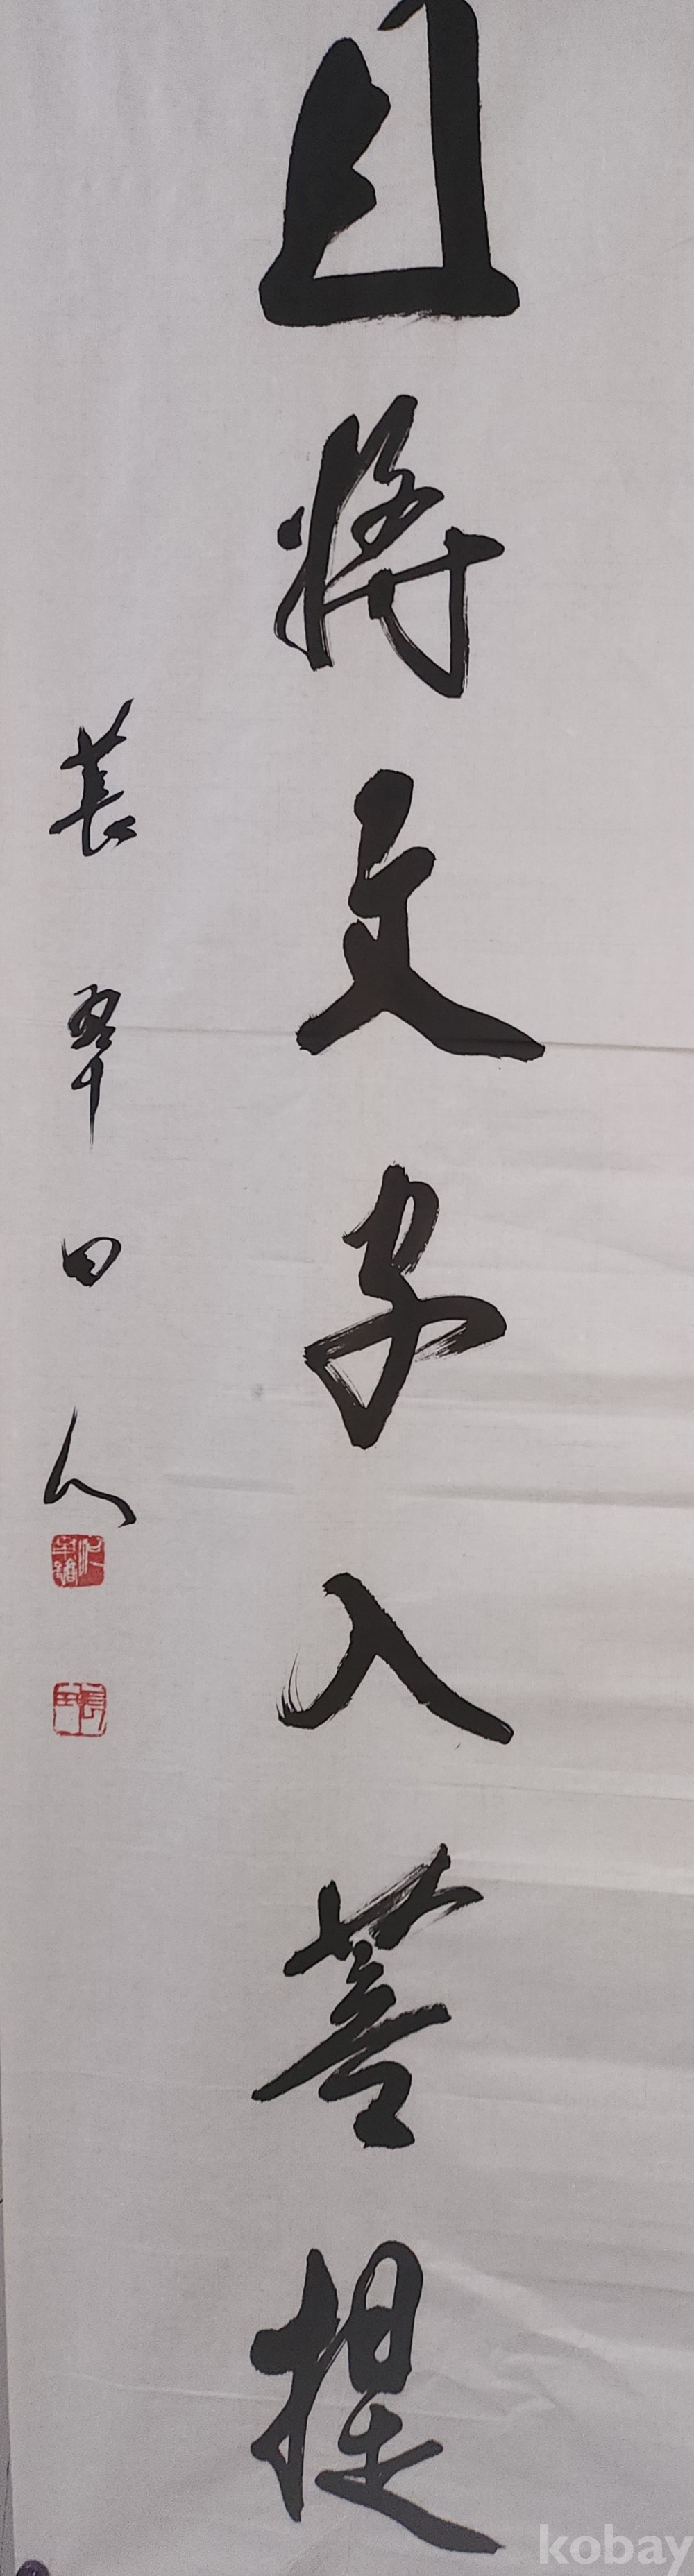 且将文字入菩提
長翠田人
kobay